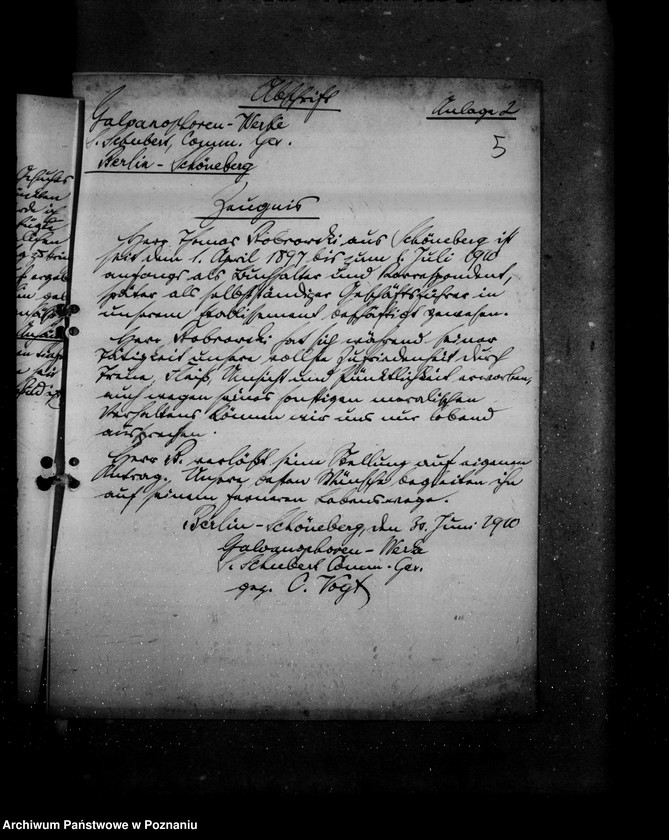 Abschrift
Anlage 2
5
Galvanophoren-Werke
S. Schubert, Comm. Ges.
Berlin-Schöneberg
Zeugnis
Herr Thomas Bobrowski aus Schöneberg ist
seit dem 1. April 1897 bis zum 1. Juli 1910
anfangs als Buchhalter und Korrespondent,
später als selbstständiger Geschäftsführer in
unserem Etablisement beschäftigt gewesen.
Herr Bobrowski hat sich während seiner
Tätigkeit unsere vollste Zufriedenheit durch
Treue, Fleiß, Umsicht und Pünktlichkeit erworben,
auch wegen seines sonstigen moralischen
Verhaltens können wir uns nur lobend
aussprechen.
Herr B. verläßt seine Stellung auf eigenen
Antrag. Unsere besten Wünsche begleiten ihn
auf seinem ferneren Lebenswege.
Berlin-Schöneberg, den 30. Juni 1910
Galvanophoren-Werke
S. Schubert Comm. Ges.
gez. C. Vogt
Archiwum Państwowe w Poznaniu